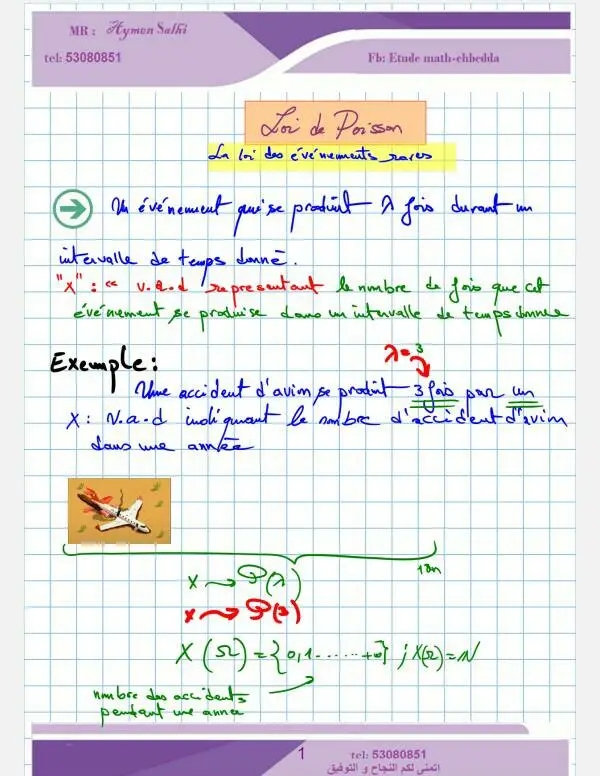 MR : Aymen Salhi
tel: 53080851
Fb: Etude math-chbedda
Loi de Poisson
La loi des événements rares
Un événement qui se produit λ fois durant un
intervalle de temps donné.
"X" : " v.a.d representant le nmbre de fois que cet
événement se produise dans un intervalle de temps donnee
λ = 3
Exemple:
Une accident d'avion se produit 3 fois par an
X : v.a.d indiquant le nombre d'accident d'avion
dans une année
1an
X → P(λ)
X → P(3)
X(Ω) = {0,1......+∞} ; X(Ω) = IN
nmbre des accidents
pendant une année
1
tel: 53080851
اتمنى لكم النجاح و التوفيق